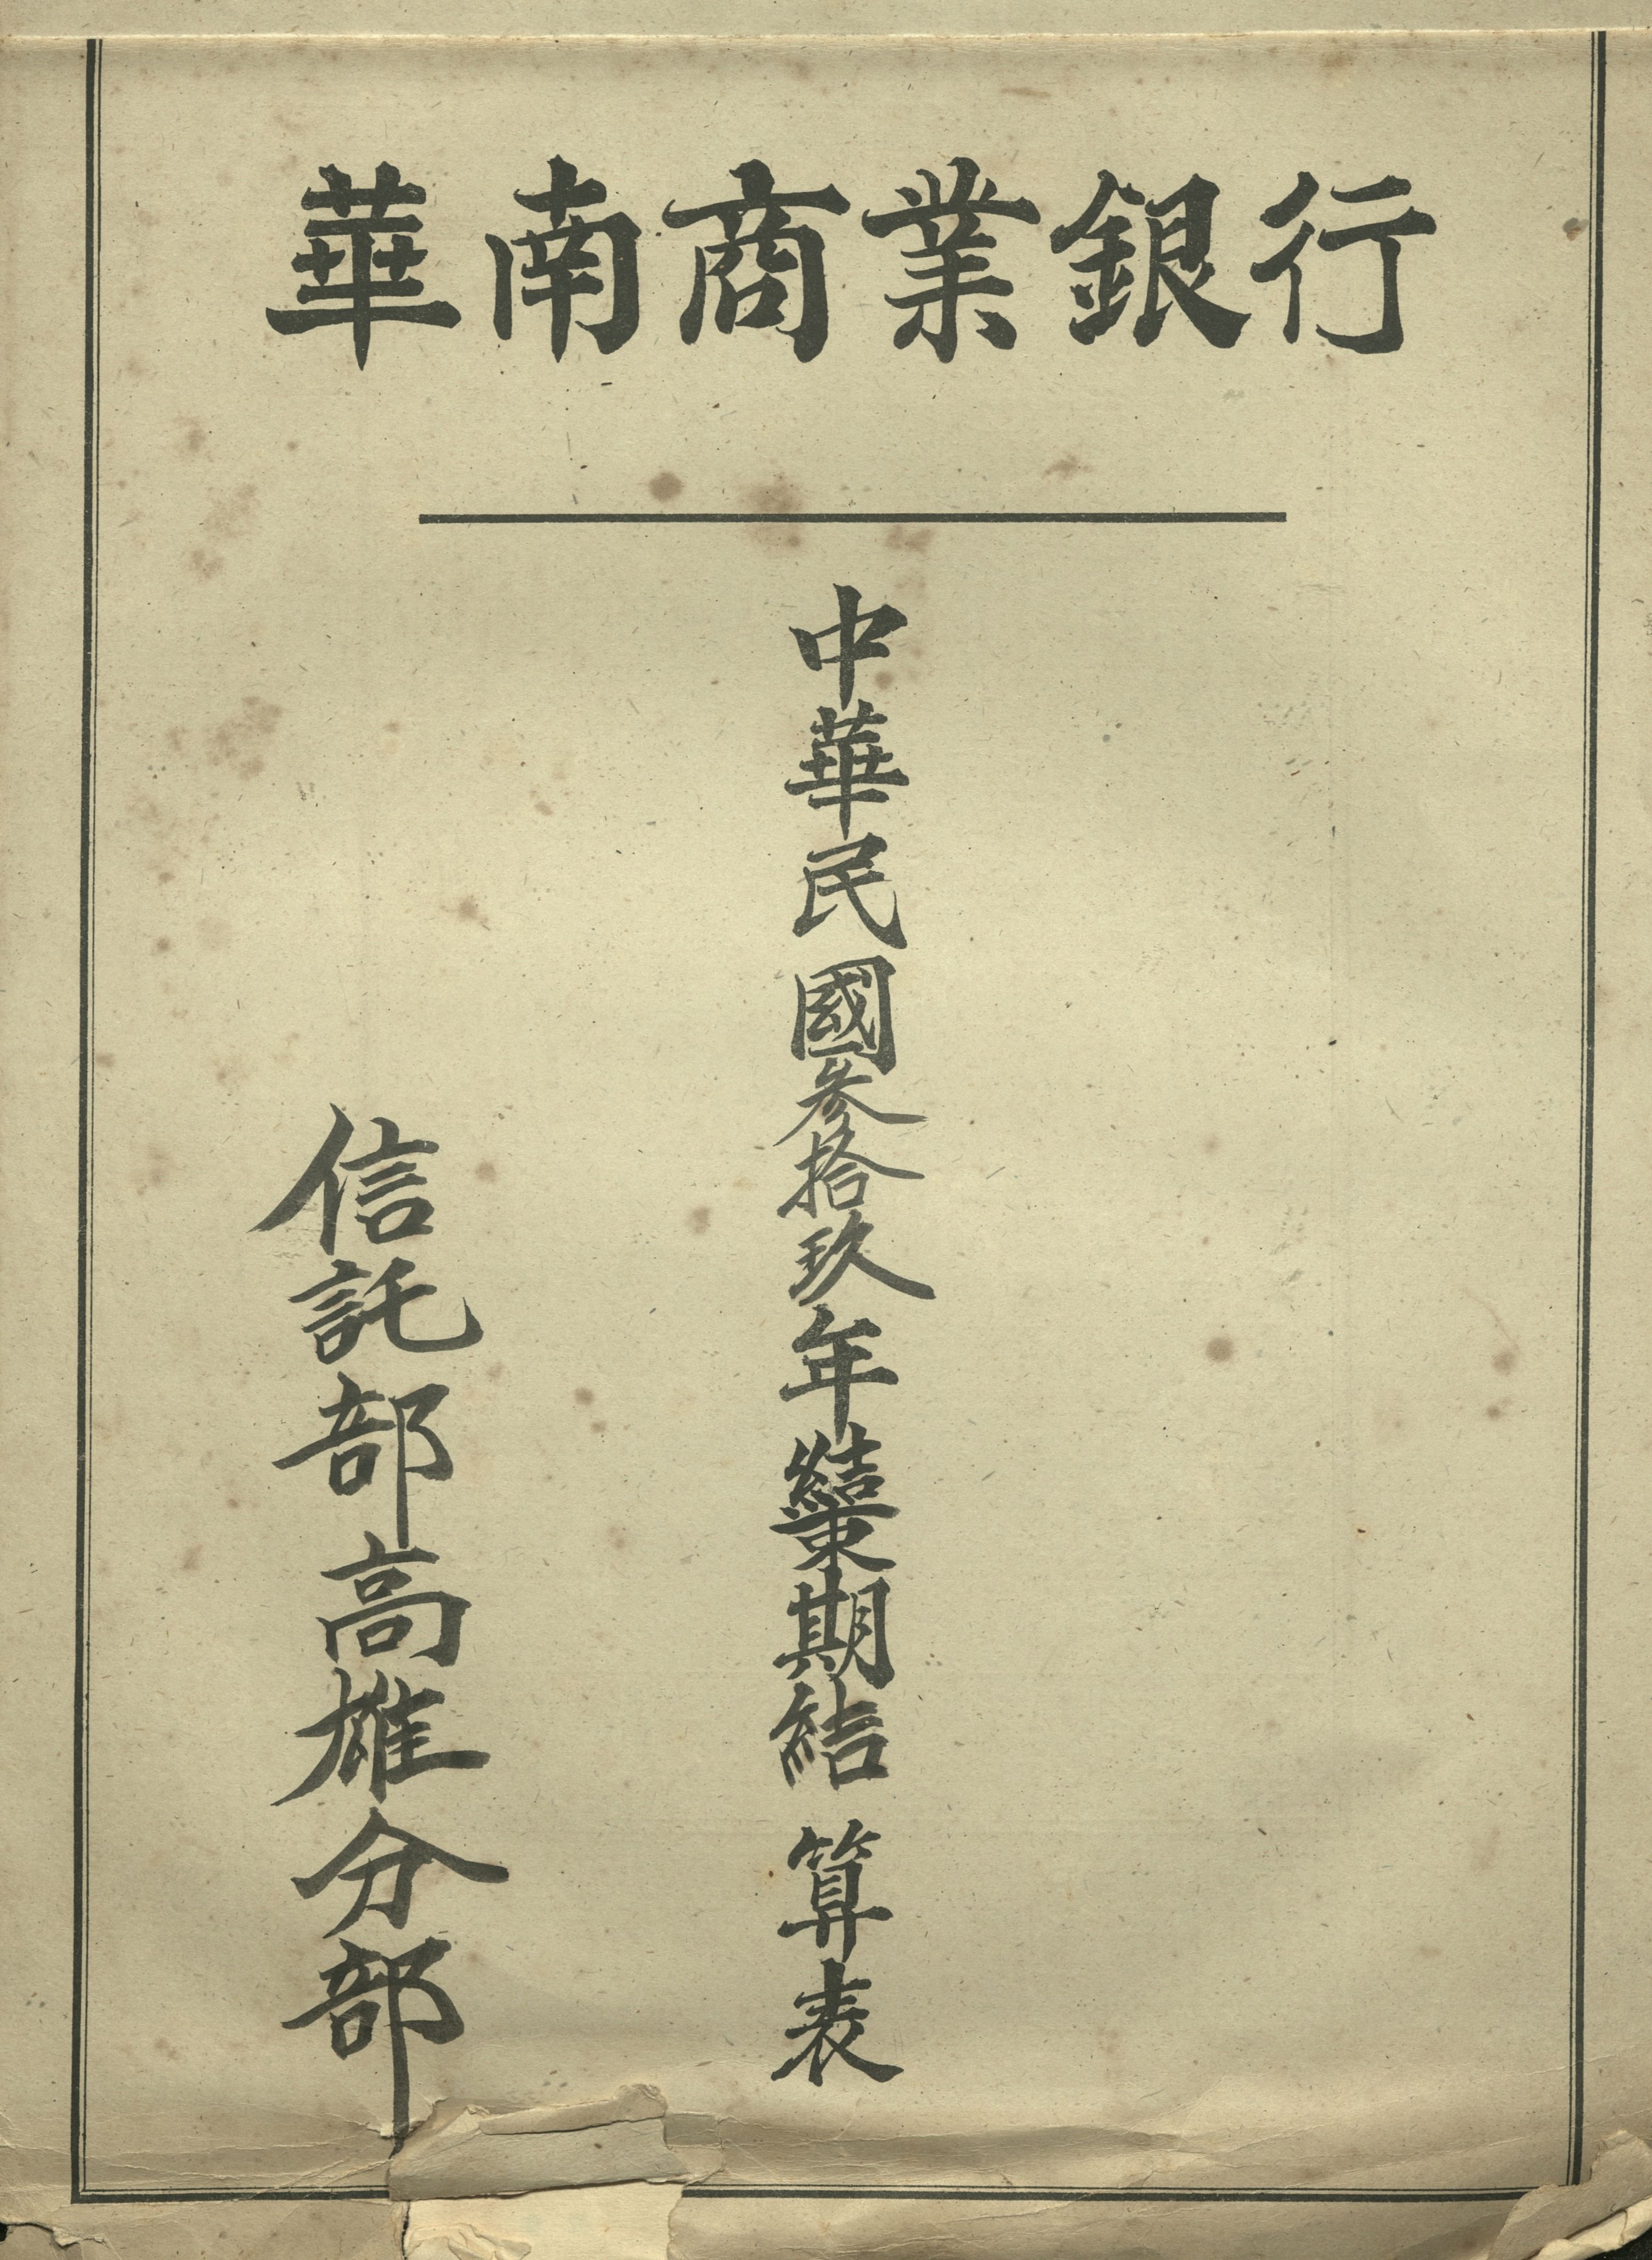 華南商業銀行
中華民國參拾玖年結束期結算表
信託部高雄分部